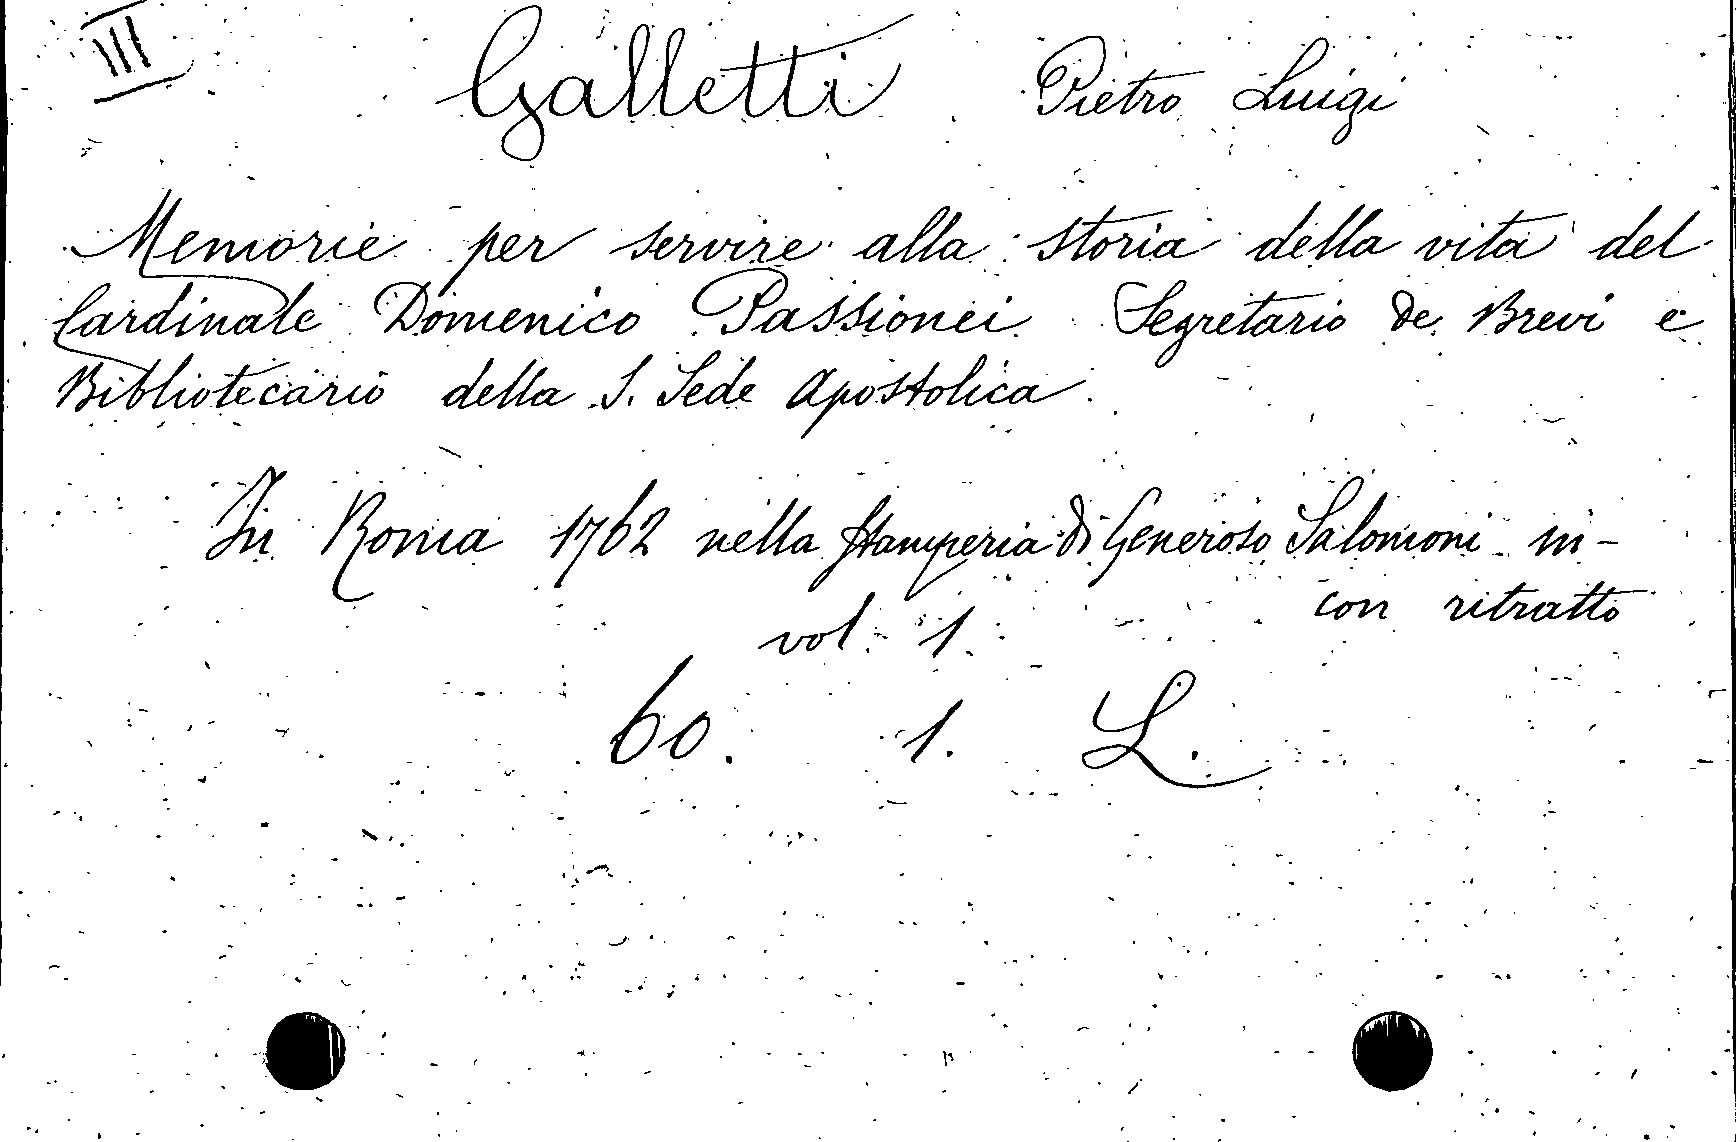 III
Galletti Pietro Luigi
Memorie per servire alla storia della vita del
Cardinale Domenico Passionei Segretario de Brevi e
Bibliotecario della S. Sede Apostolica
In Roma 1762 nella Stamperia di Generoso Salomoni in-
con ritratto
vol. 1.
60. 1. L.